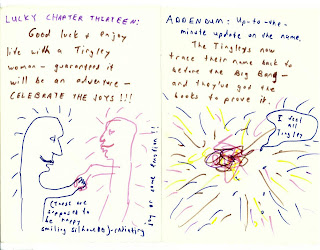 LUCKY CHAPTER THIRTEEN:
Good luck & enjoy
life with a Tingley
woman - guaranteed it
will be an adventure -
CELEBRATE THE JOYS!!!
(these are
supposed to
be happy
smiling silhouettes) - radiating
joy or some dangfool !!
ADDENDUM: Up-to-the-
minute update on the name.
The Tingleys now
trace their name back to
before the Big Bang -
and they've got the
books to prove it:
I feel
all
Tingley